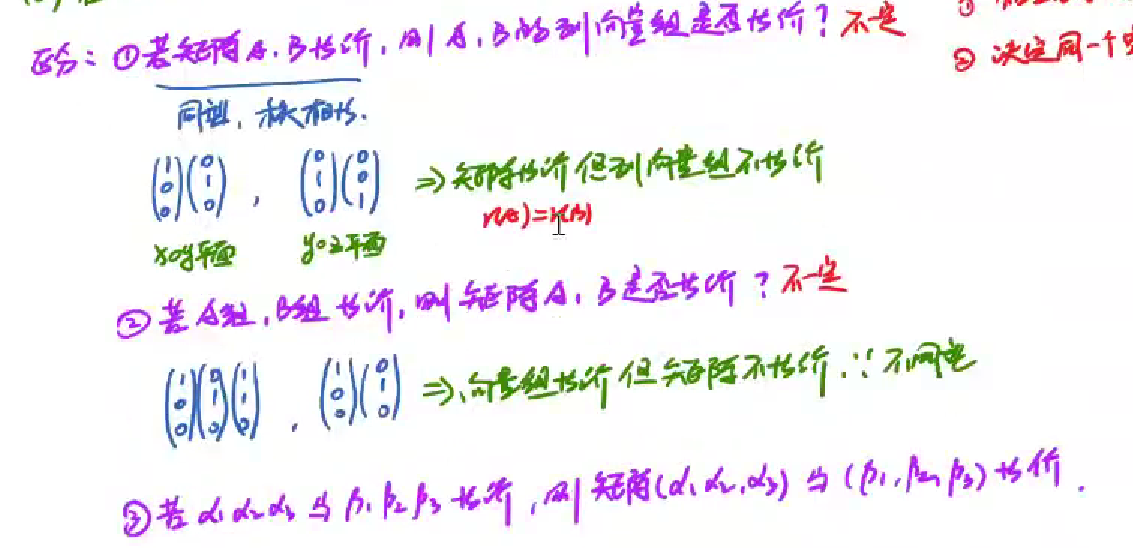 区分：①若矩阵A，B等价，则A，B的列向量组是否等价？不一定
② 决定同一个
同型，秩相等.
(1 0 0)(0 1 0)，(0 1 0)(0 0 1) ⇒矩阵等价但列向量组不等价
r(A)=r(B)
xoy平面 yoz平面
②若A组，B组等价，则矩阵A，B是否等价？不一定
(1 0 0)(0 1 0)(1 1 0)，(1 0 0)(0 1 0) ⇒向量组等价但矩阵不等价，∵不同型
③若α₁α₂α₃与β₁β₂β₃等价，则矩阵(α₁α₂，α₃)与(β₁，β₂，β₃)等价.